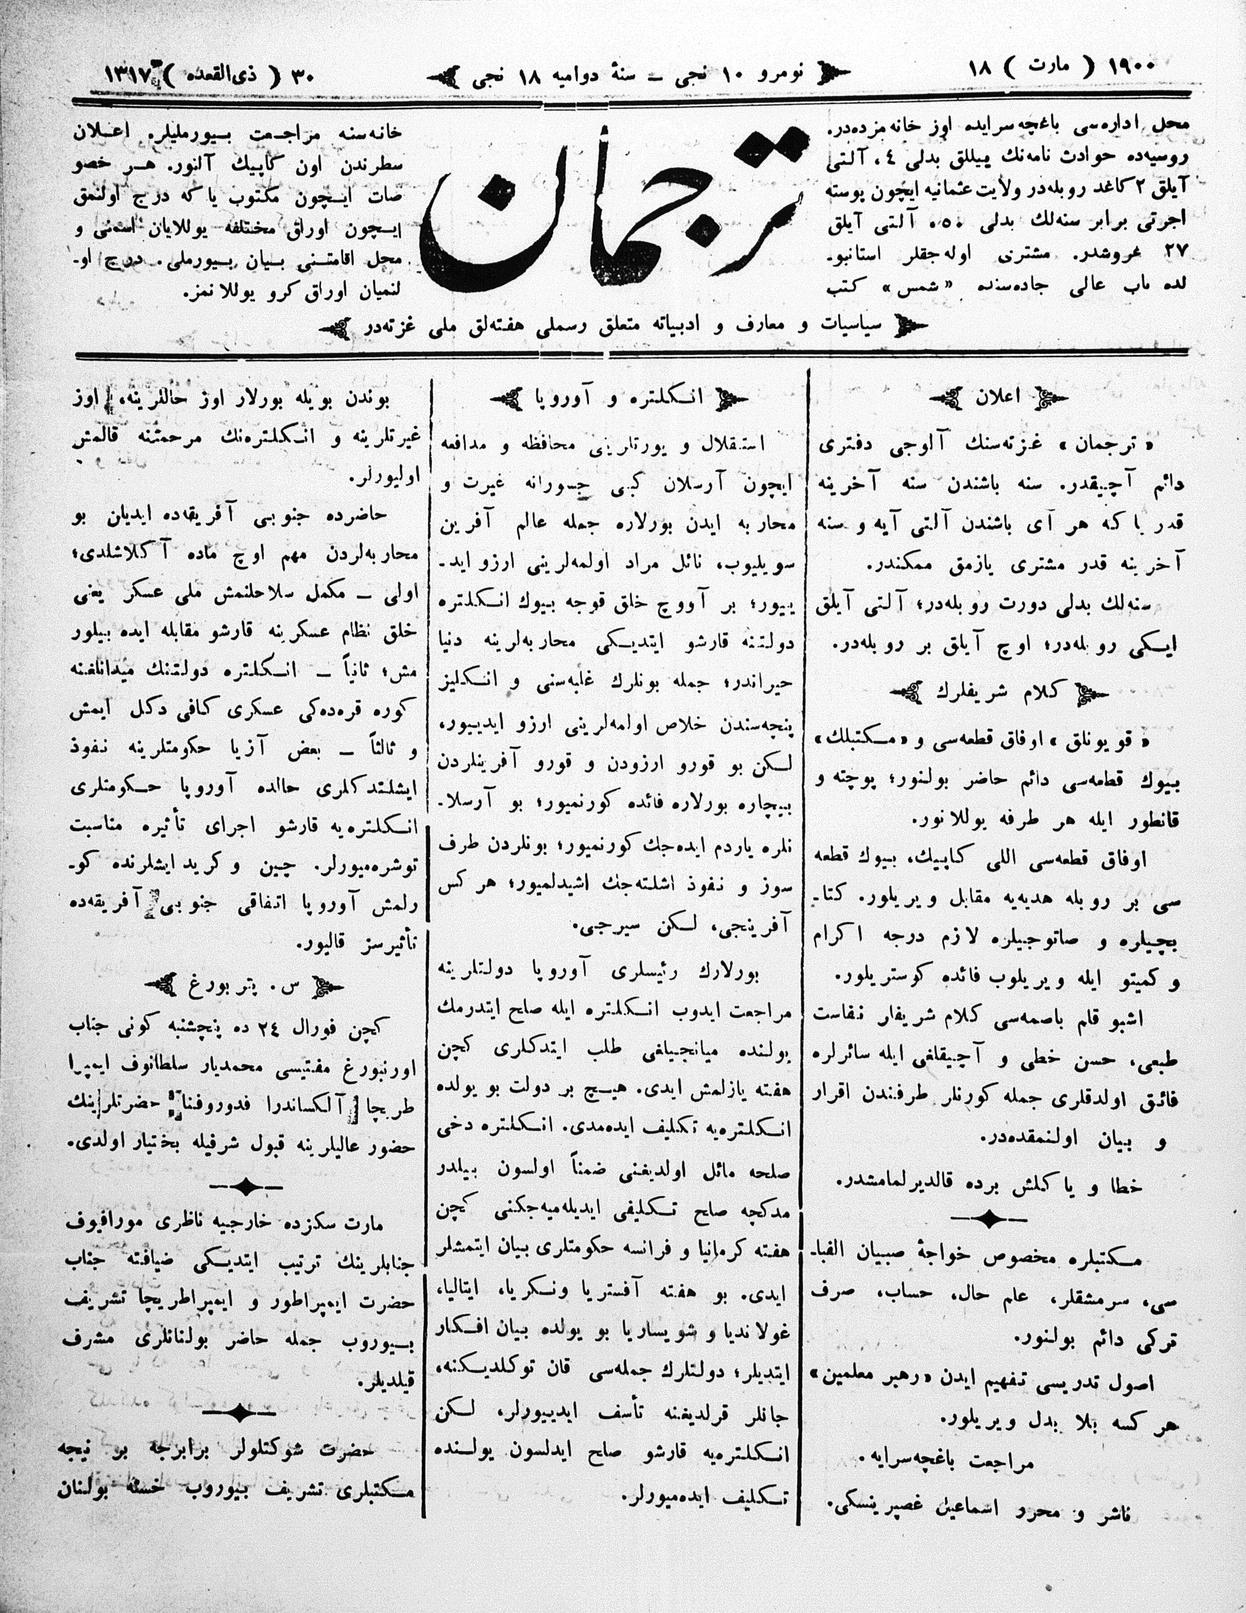 ١٩٠٠ ( مارت ) ١٨
نومرو ١٠ نجی – سنهٔ دوامیه ١٨ نجی
٣٠ ( ذی القعده ) ١٣١٧
محل اداره‌سی باغچه‌سرایده اوز خانه‌مزده‌در.
روسیه‌ده حوادث نامه‌نك ییللق بدلی ٤، آلتی
آیلق ٢ كاغد روبله‌در ولایت عثمانیه ایچون پوسته
اجرتی برابر سنه‌لك بدلی ٥٠، آلتی آیلق
٢٧ غروشدر. مشتری اوله‌جقلر استانبو-
لده باب عالی جاده‌سنده «شمس» كتب
ترجمان
خانه‌سنه مراجعت بیورملیلر. اعلان
سطرندن اون كاپیك آلنور. هر خصو
صات ایچون مكتوب یا كه درج اولنمق
ایچون اوراق مختلفه یوللایان اسمنی و
محل اقامتنی بیان بیورملی. درج او-
لنمیان اوراق كرو یوللانمز.
سیاسیات و معارف و ادبیاته متعلق رسملی هفته‌لق ملی غزته‌در
اعلان
«ترجمان» غزته‌سنك آلوجی دفتری
دائم آچیقدر. سنه باشندن سنه آخرینه
قدر یا كه هر آی باشندن آلتی آیه و سنه
آخرینه قدر مشتری یازمق ممكندر.
سنه‌لك بدلی دورت روبله‌در؛ آلتی آیلق
ایكی روبله‌در؛ اوچ آیلق بر روبله‌در.
كلام شریفلرك
«قویونلق» اوفاق قطعه‌سی و «مكتبلك»
بیوك قطعه‌سی دائم حاضر بولنور؛ پوچته و
قانطور ایله هر طرفه یوللانور.
اوفاق قطعه‌سی اللی كاپیك، بیوك قطعه
سی بر روبله هدیه‌یه مقابل ویریلور. كتا-
بچیلره و صاتوجیلره لازم درجه اكرام
و كمیتو ایله ویریلوب فائده كوستریلور.
اشبو قلم باصمه‌سی كلام شریفلر نفاست
طبعی، حسن خطی و آچیقلغی ایله سائرلره
فائق اولدقلری جمله كورنلر طرفندن اقرار
و بیان اولنمقده‌در.
خطا و یاكلش برده قالدیرلمامشدر.
مكتبلره مخصوص خواجهٔ صبیان الفبا-
سی، سرمشقلر، علم حال، حساب، صرف
تركی دائم بولنور.
اصول تدریسی تفهیم ایدن «رهبر معلمین»
هر كسه بلا بدل ویریلور.
مراجعت باغچه‌سرایه.
ناشر و محرر اسماعیل غصپرینسكی.
انكلتره و آوروپا
استقلال و یورتلرینی محافظه و مدافعه
ایچون آرسلان كبی جسورانه غیرت و
محاربه ایدن بورلاره جمله عالم آفرین
سویلیوب، نائل مراد اولمه‌لرینی ارزو اید-
ییور؛ بر آووچ خلق قوجه بیوك انكلتره
دولتنه قارشو ایتدیكی محاربه‌لرینه دنیا
حیراندر؛ جمله بونلرك غلبه‌سنی و انكلیز
پنچه‌سندن خلاص اولمه‌لرینی ارزو ایدییور،
لكن بو قورو ارزودن و قورو آفرینلردن
بیچاره بورلاره فائده كورنمیور؛ بو آرسلا-
نلره یاردم ایده‌جك كورنمیور؛ بونلردن طرف
سوز و نفوذ اشلته‌جك اشیدلمیور؛ هر كس
آفرینجی، لكن سیرجی.
بورلارك رئیسلری آوروپا دولتلرینه
مراجعت ایدوب انكلتره ایله صلح ایتدرمك
یولنده میانجیلغی طلب ایتدكلری كچن
هفته یازلمش ایدی. هیچ بر دولت بو یولده
انكلتره‌یه تكلیف ایده‌مدی. انكلتره دخی
صلحه مائل اولدیغنی ضمناً اولسون بیلدر
مدكچه صلح تكلیفی ایدیله‌میه‌جكنی كچن
هفته كرمانیا و فرانسه حكومتلری بیان ایتمشلر
ایدی. بو هفته آفستریا ونكریا، ایتالیا،
غولاندیا و شویساریا بو یولده بیان افكار
ایتدیلر؛ دولتلرك جمله‌سی قان توكلدیكنه،
جانلر قرلدیغنه تأسف ایدییورلر، لكن
انكلتره‌یه قارشو صلح ایدلسون یولنده
تكلیف ایده‌میورلر.
بوندن بویله بورلار اوز حاللرینه، اوز
غیرتلرینه و انكلتره‌نك مرحمتنه قالمش
اولیورلر.
حاضرده جنوبی آفریقه‌ده ایدیان بو
محاربه‌لردن مهم اوچ ماده آكلاشلدی؛
اولی – مكمل سلاحلنمش ملی عسكر یعنی
خلق نظام عسكرینه قارشو مقابله ایده بیلور
مش؛ ثانیاً – انكلتره دولتنك میدانلغنه
كوره قره‌ده‌كی عسكری كافی دكل ایمش
و ثالثاً – بعض آزیا حكومتلرینه نفوذ
ایشلتدكلری حالده آوروپا حكومتلری
انكلتره‌یه قارشو اجرای تأثیره مناسبت
توشره‌میورلر. چین و كرید ایشلرنده كو-
رلمش آوروپا اتفاقی جنوبی آفریقه‌ده
تأثیرسز قالیور.
س. پتربورغ
كچن فورال ٢٤ ده پنچشنبه كونی جناب
اورنبورغ مفتیسی محمدیار سلطانوف ایمپرا
طریچا آلكساندرا فدوروفنا حضرتلرینك
حضور عالیلرینه قبول شرفیله بختیار اولدی.
مارت سكزده خارجیه ناظری مورافیوف
جنابلرینك ترتیب ایتدیكی ضیافته جناب
حضرت ایمپراطور و ایمپراطریچا تشریف
بیوروب جمله حاضر بولنانلری مشرف
قیلدیلر.
حضرت شوكتلولر برابرجه بر نیچه
مكتبلری تشریف بیوروب خسته بولنان